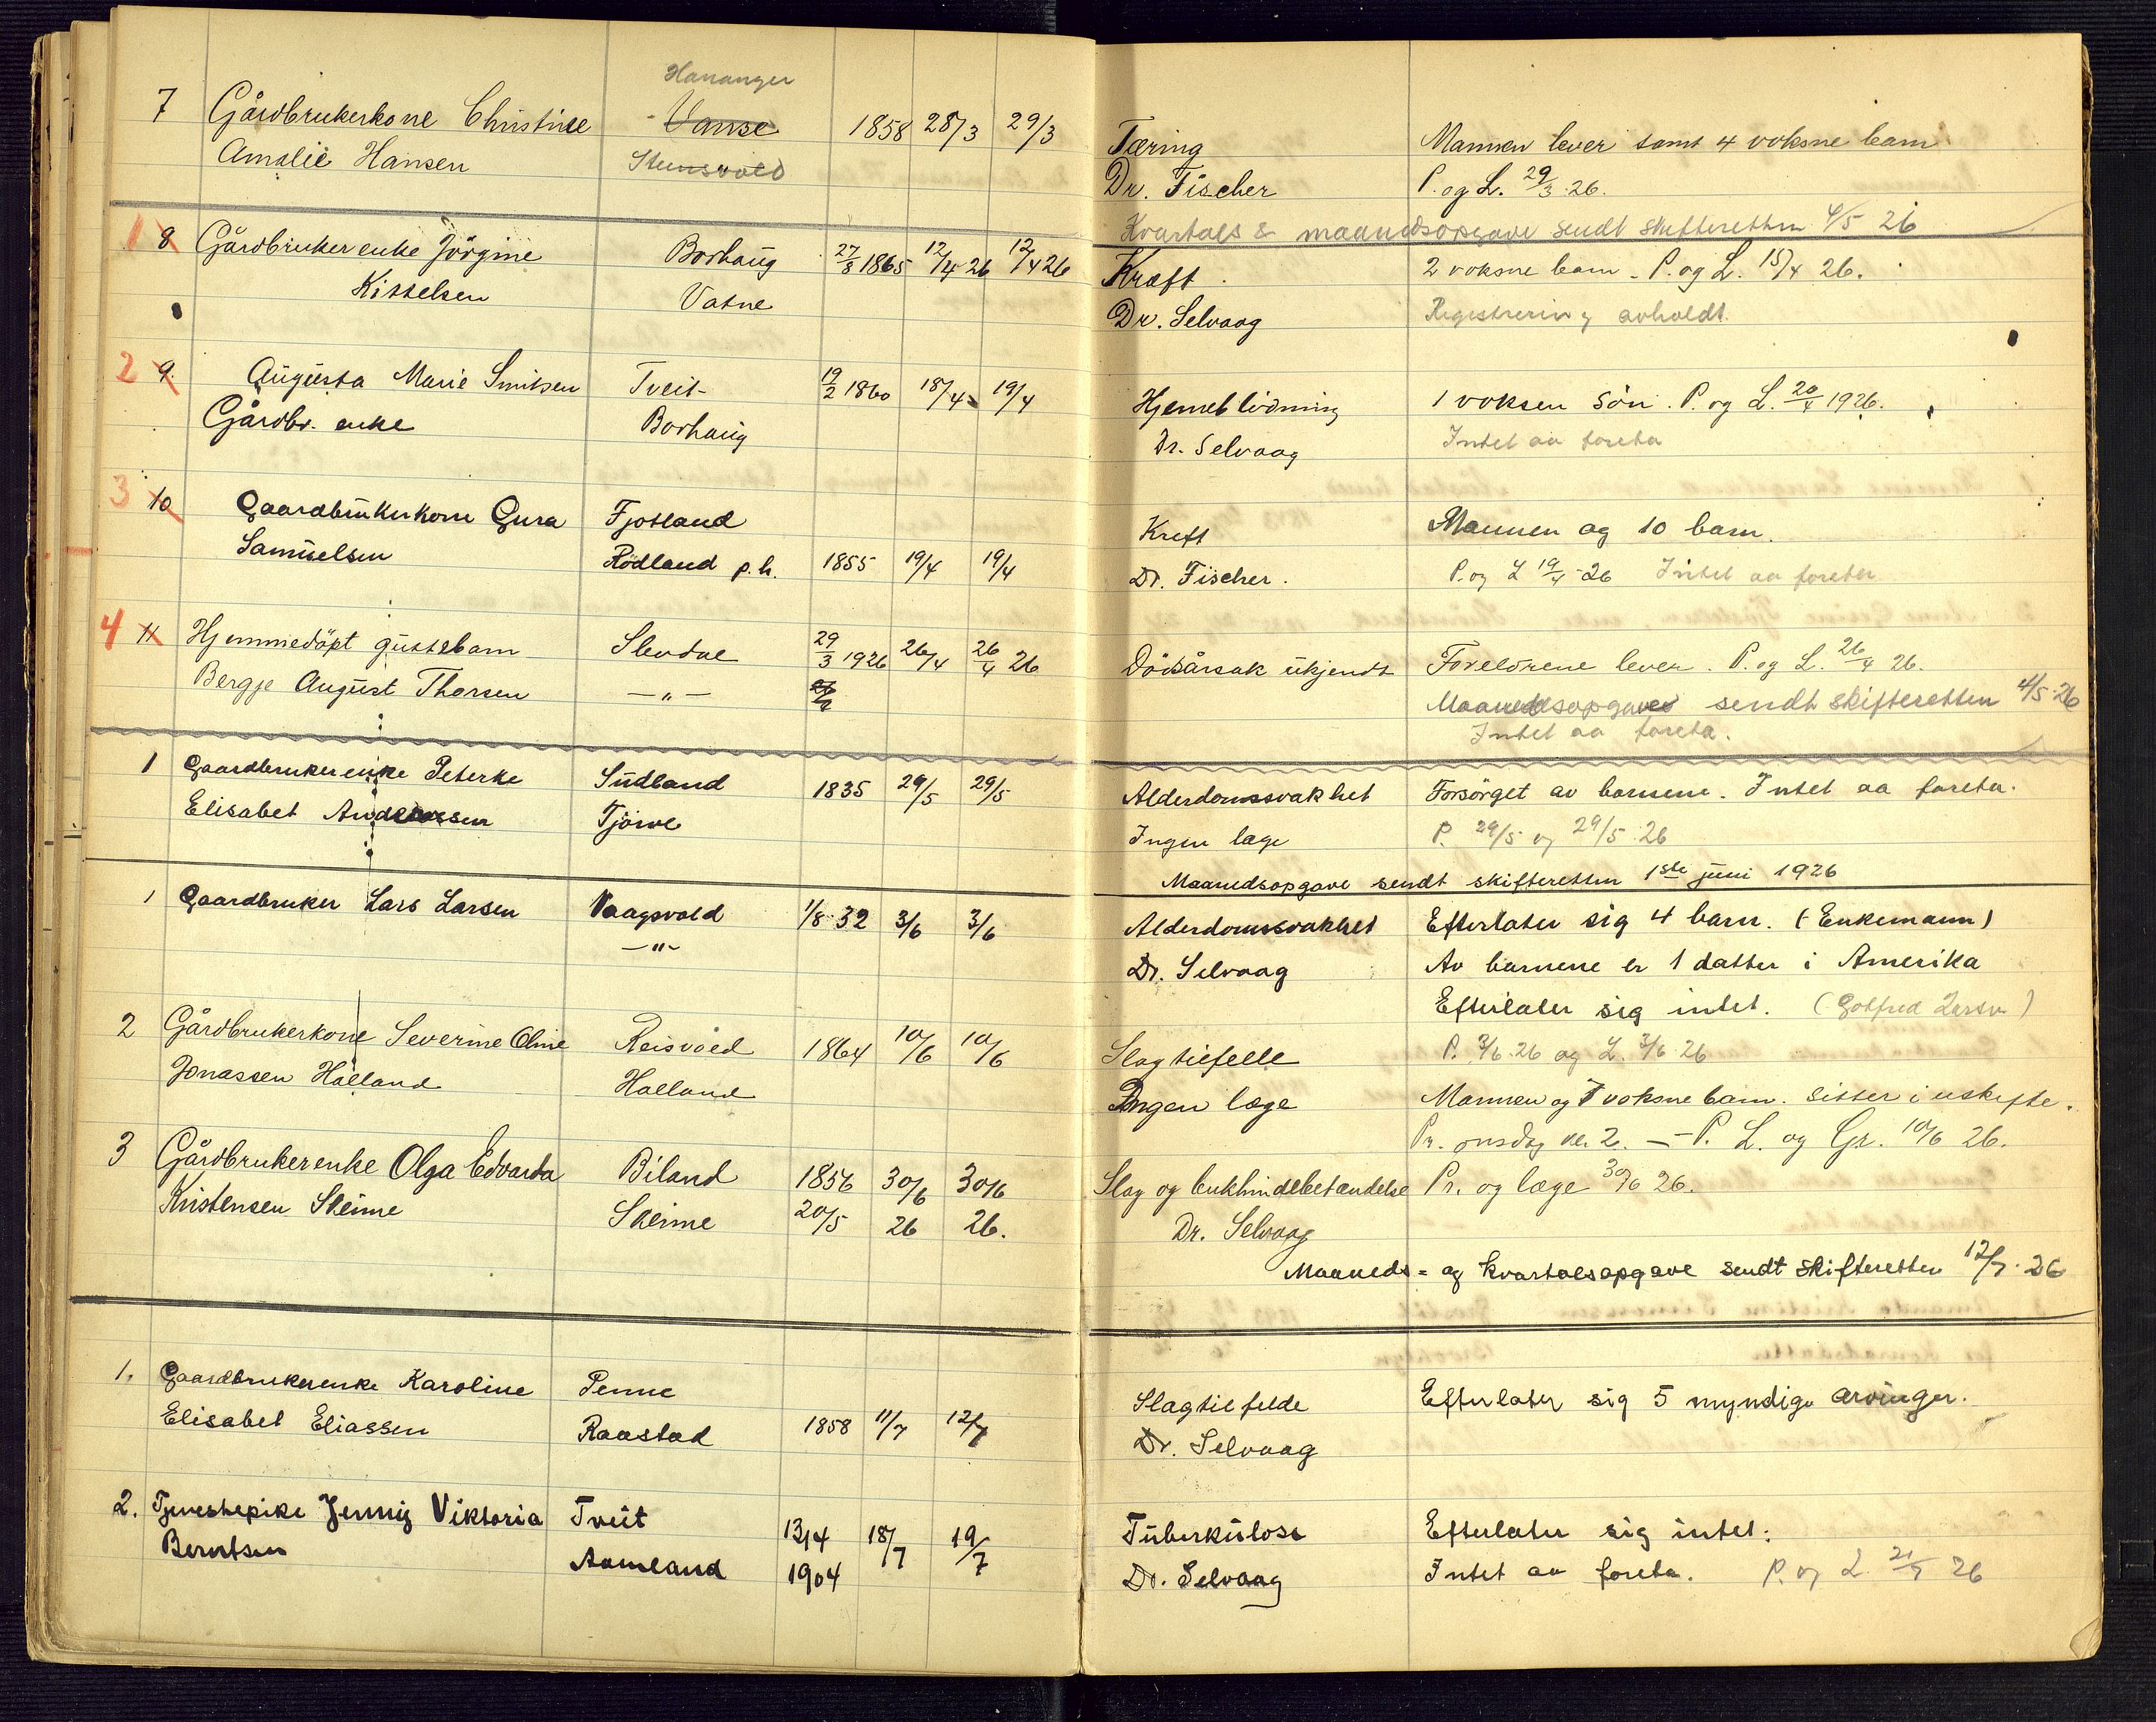 Hananger
7 Gårdbrukerkone Christine Vanse 1858 28/3 29/3
Amalie Hansen Stensvold
Tæring Mannen lever samt 4 voksne barn
Dr. Fischer P. og L. 29/3 26.
Kvartals & maanedsopgave sendt skifteretten 4/5 26
1 8 Gårdbrukerenke Jörgine Borhaug 27/8 1865 12/4 26 12/4 26
Kittelsen Vatne
Kræft 2 voksne barn - P. og L. 15/4 26.
Dr. Selvaag Registrering avholdt.
2 9. Augusta Marie Smitsen Tveit- 19/2 1860 18/4 19/4
Gårdbr. enke Borhaug
Hjerneblödning 1 voksen sön. P. og L. 20/4 1926.
Dr. Selvaag Intet aa foreta
3 10 Gaardbrukerkone Gura Fjotland
Samuelsen Rödland p.h. 1855 19/4 19/4
Kreft Mannen og 10 barn.
Dr. Fischer. P. og L 19/4-26 Intet aa foreta
4 11 Hjemmedöpt guttebarn Slevdal 29/3 1926 26/4 26/4 26
Bergje August Thorsen —"—
Dödsårsak ukjendt Foreldrene lever. P. og L. 26/4 26.
Maanedsopgave sendt skifteretten 4/5-26
Intet aa foreta.
1 Gaardbrukerenke Peterke Sudland 1835 29/5 29/5
Elisabet Andreassen Tjörve
Alderdomssvakhet Forsörget av barnene. Intet aa foreta.
Ingen læge P. 29/5 og 29/5 26
Maanedsopgave sendt skifteretten 1ste juni 1926
1 Gaardbruker Lars Larsen Vaagsvold 1/8-32 3/6 3/6
—"—
Alderdomssvakhet Efterlater sig 4 barn. (Enkemann)
Dr. Selvaag Av barnene er 1 datter i Amerika
Efterlater sig intet. (Gotfred Larsen)
P. 3/6.26 og L. 3/6 26
2 Gårdbrukerkone Severine Oline Reisvold 1864 10/6 10/6
Jonassen Hålland Halland
Slagtilfelle
Ingen læge Mannen og 7 voksne barn. sitter i uskifte.
Pr. onsdag kl. 2. — P. L. og Gr. 10/6 26.
3 Gårdbrukerenke Olga Edvarda Biland 1856 30/6 30/6
Kristensen Skeime Skeime 20/5 26 26.
Slag og bukhindebetændelse Pr. og læge 30/6 26.
Dr. Selvaag
Maaneds= og kvartalsopgave sendt skifteretten 12/7.26
1. Gaardbrukerenke Karoline Penne
Elisabet Eliassen Raastad 1858 11/7 12/7
Slagtilfelde Efterlater sig 5 myndige arvinger.
Dr. Selvaag
2. Tjenestepike Jenny Viktoria Tveit 13/4 18/7 19/7
Berntsen Aameland 1904
Tuberkulose Efterlater sig intet.
Dr. Selvaag Intet aa foreta. P. og L 21/7 26